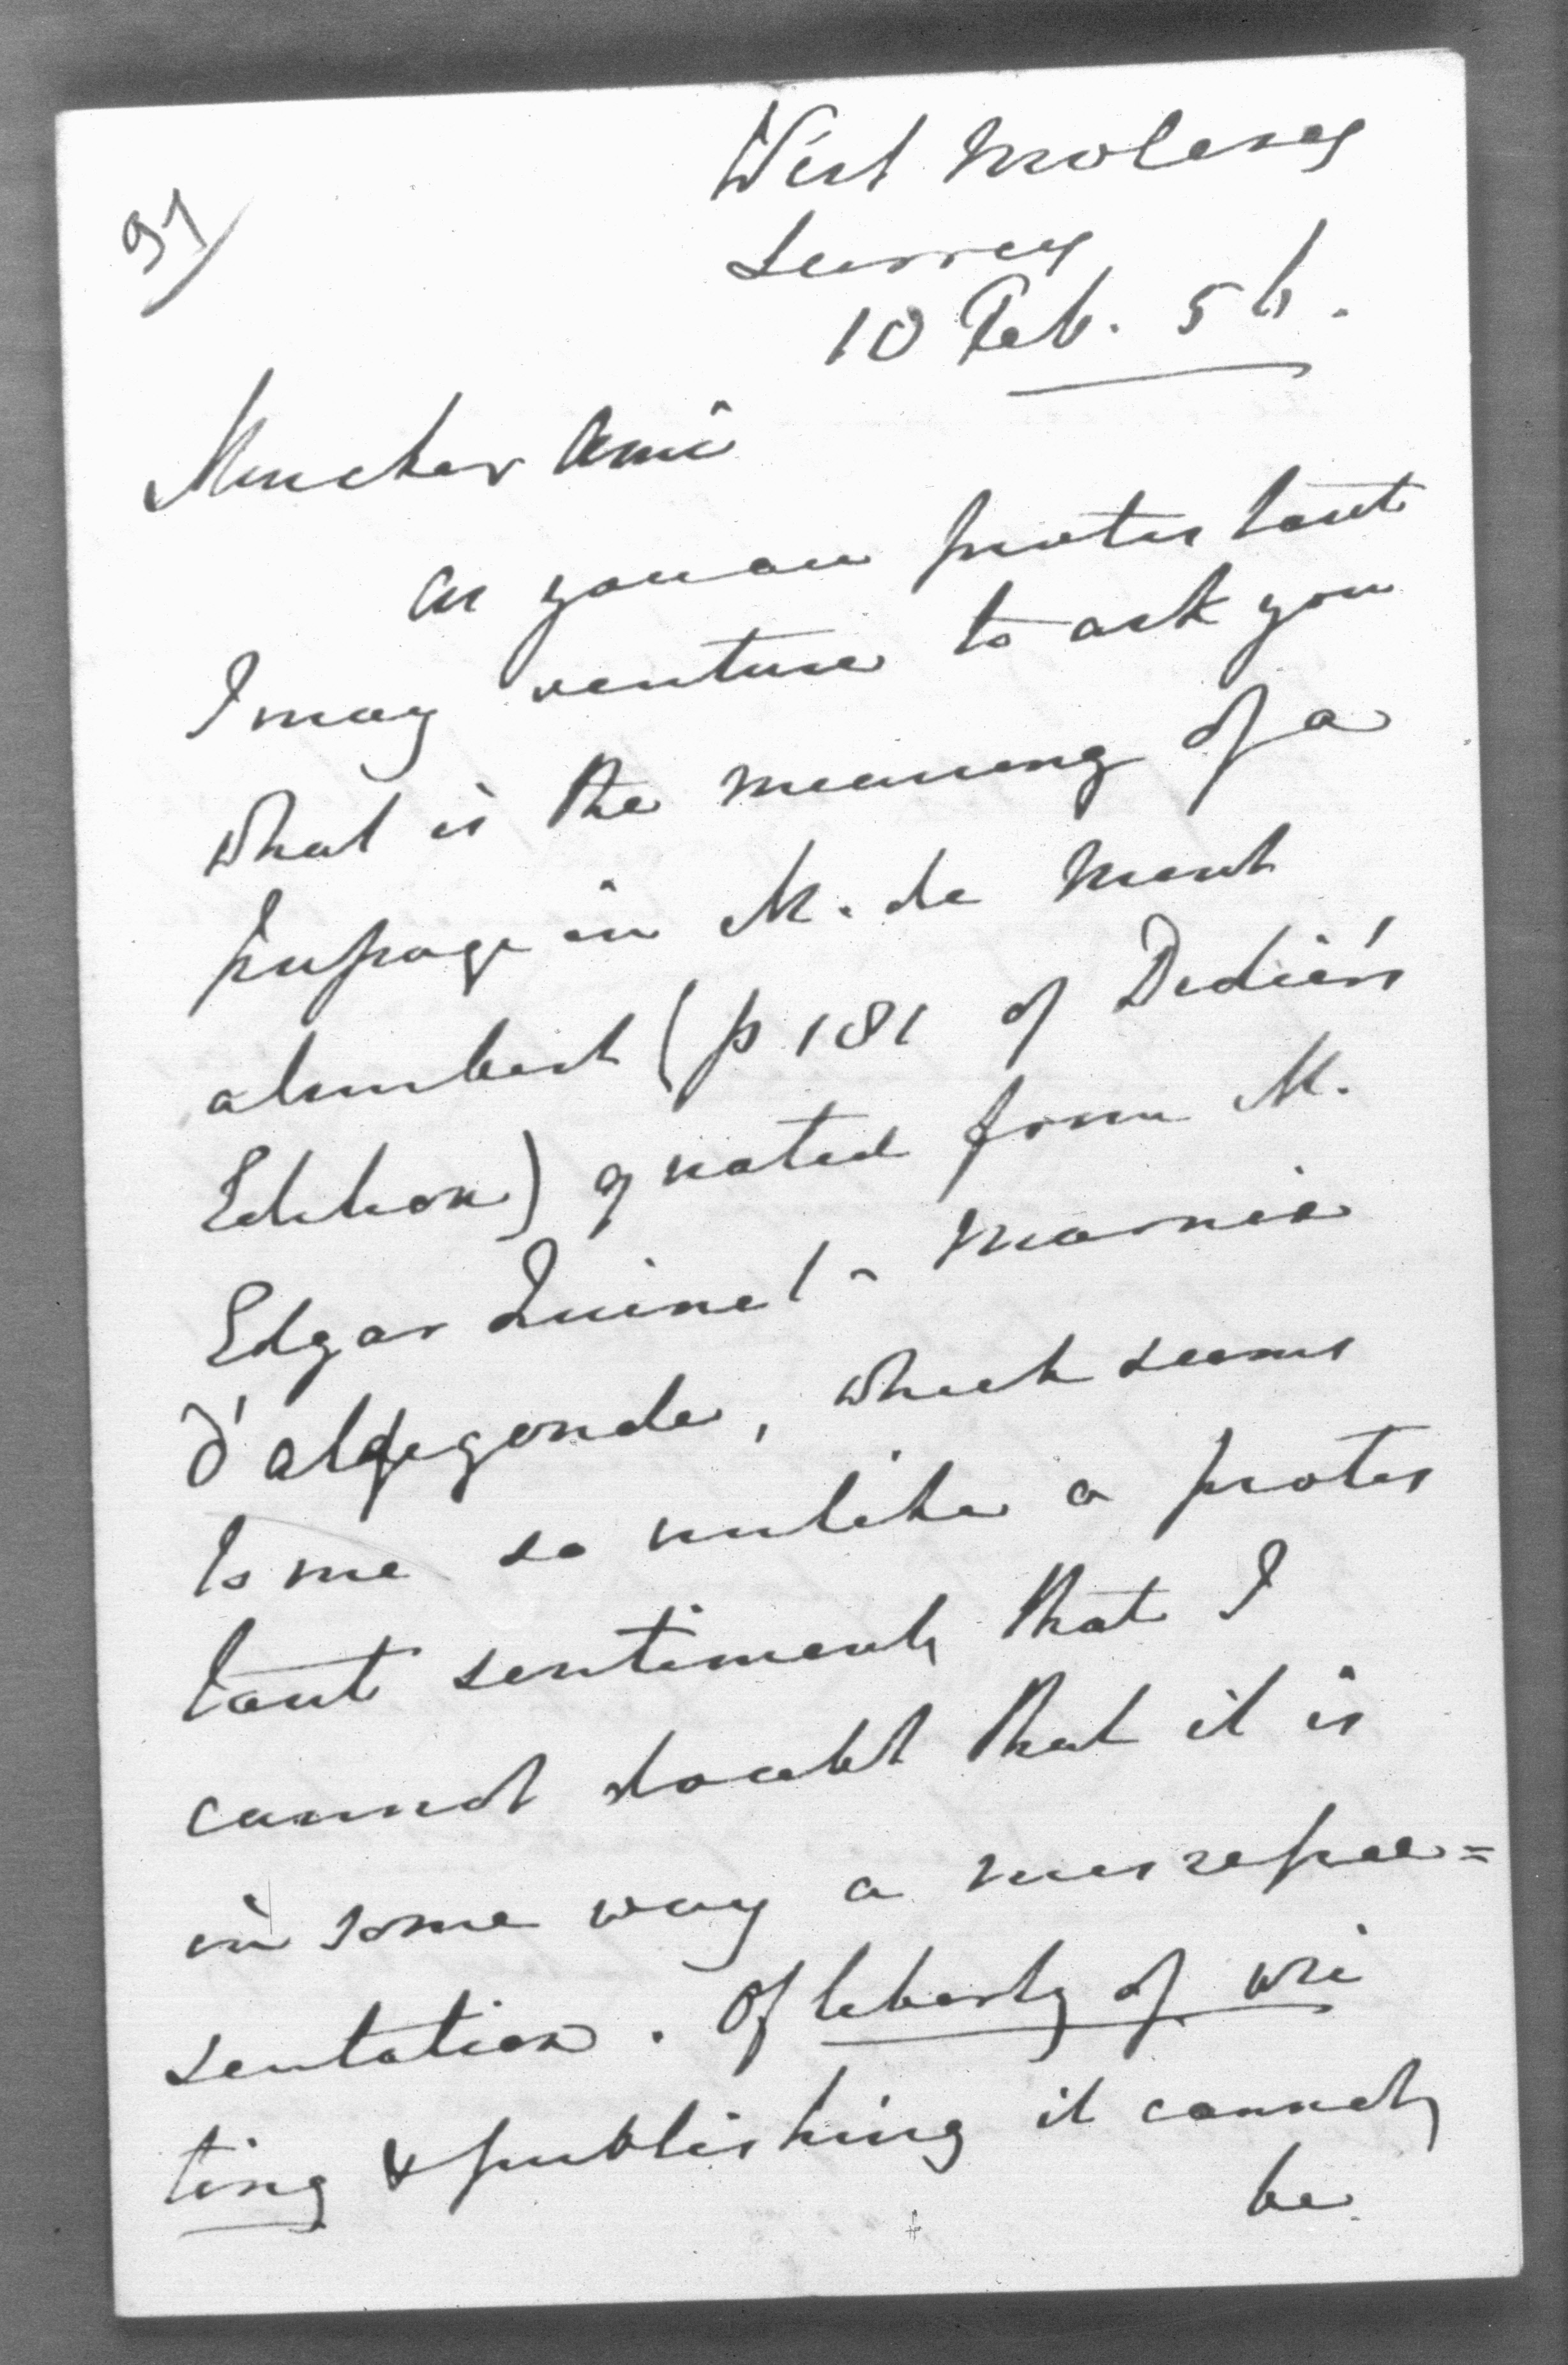 91
West Molesey
Surrey
10 Feb. 56.
Mon cher Ami
as you are protestant
I may venture to ask you
what is the meaning of a
passage in M. de Mont
alembert (p 181 of Didier's
Edition) quoted from M.
Edgar Quinet - Marnix
d'aldegonde, which seems
to me so unlike a protes
tant sentiment, that I
cannot doubt that it is
in some way a misrepre=
sentation. Of liberty of wri
ting & publishing it cannot,
be